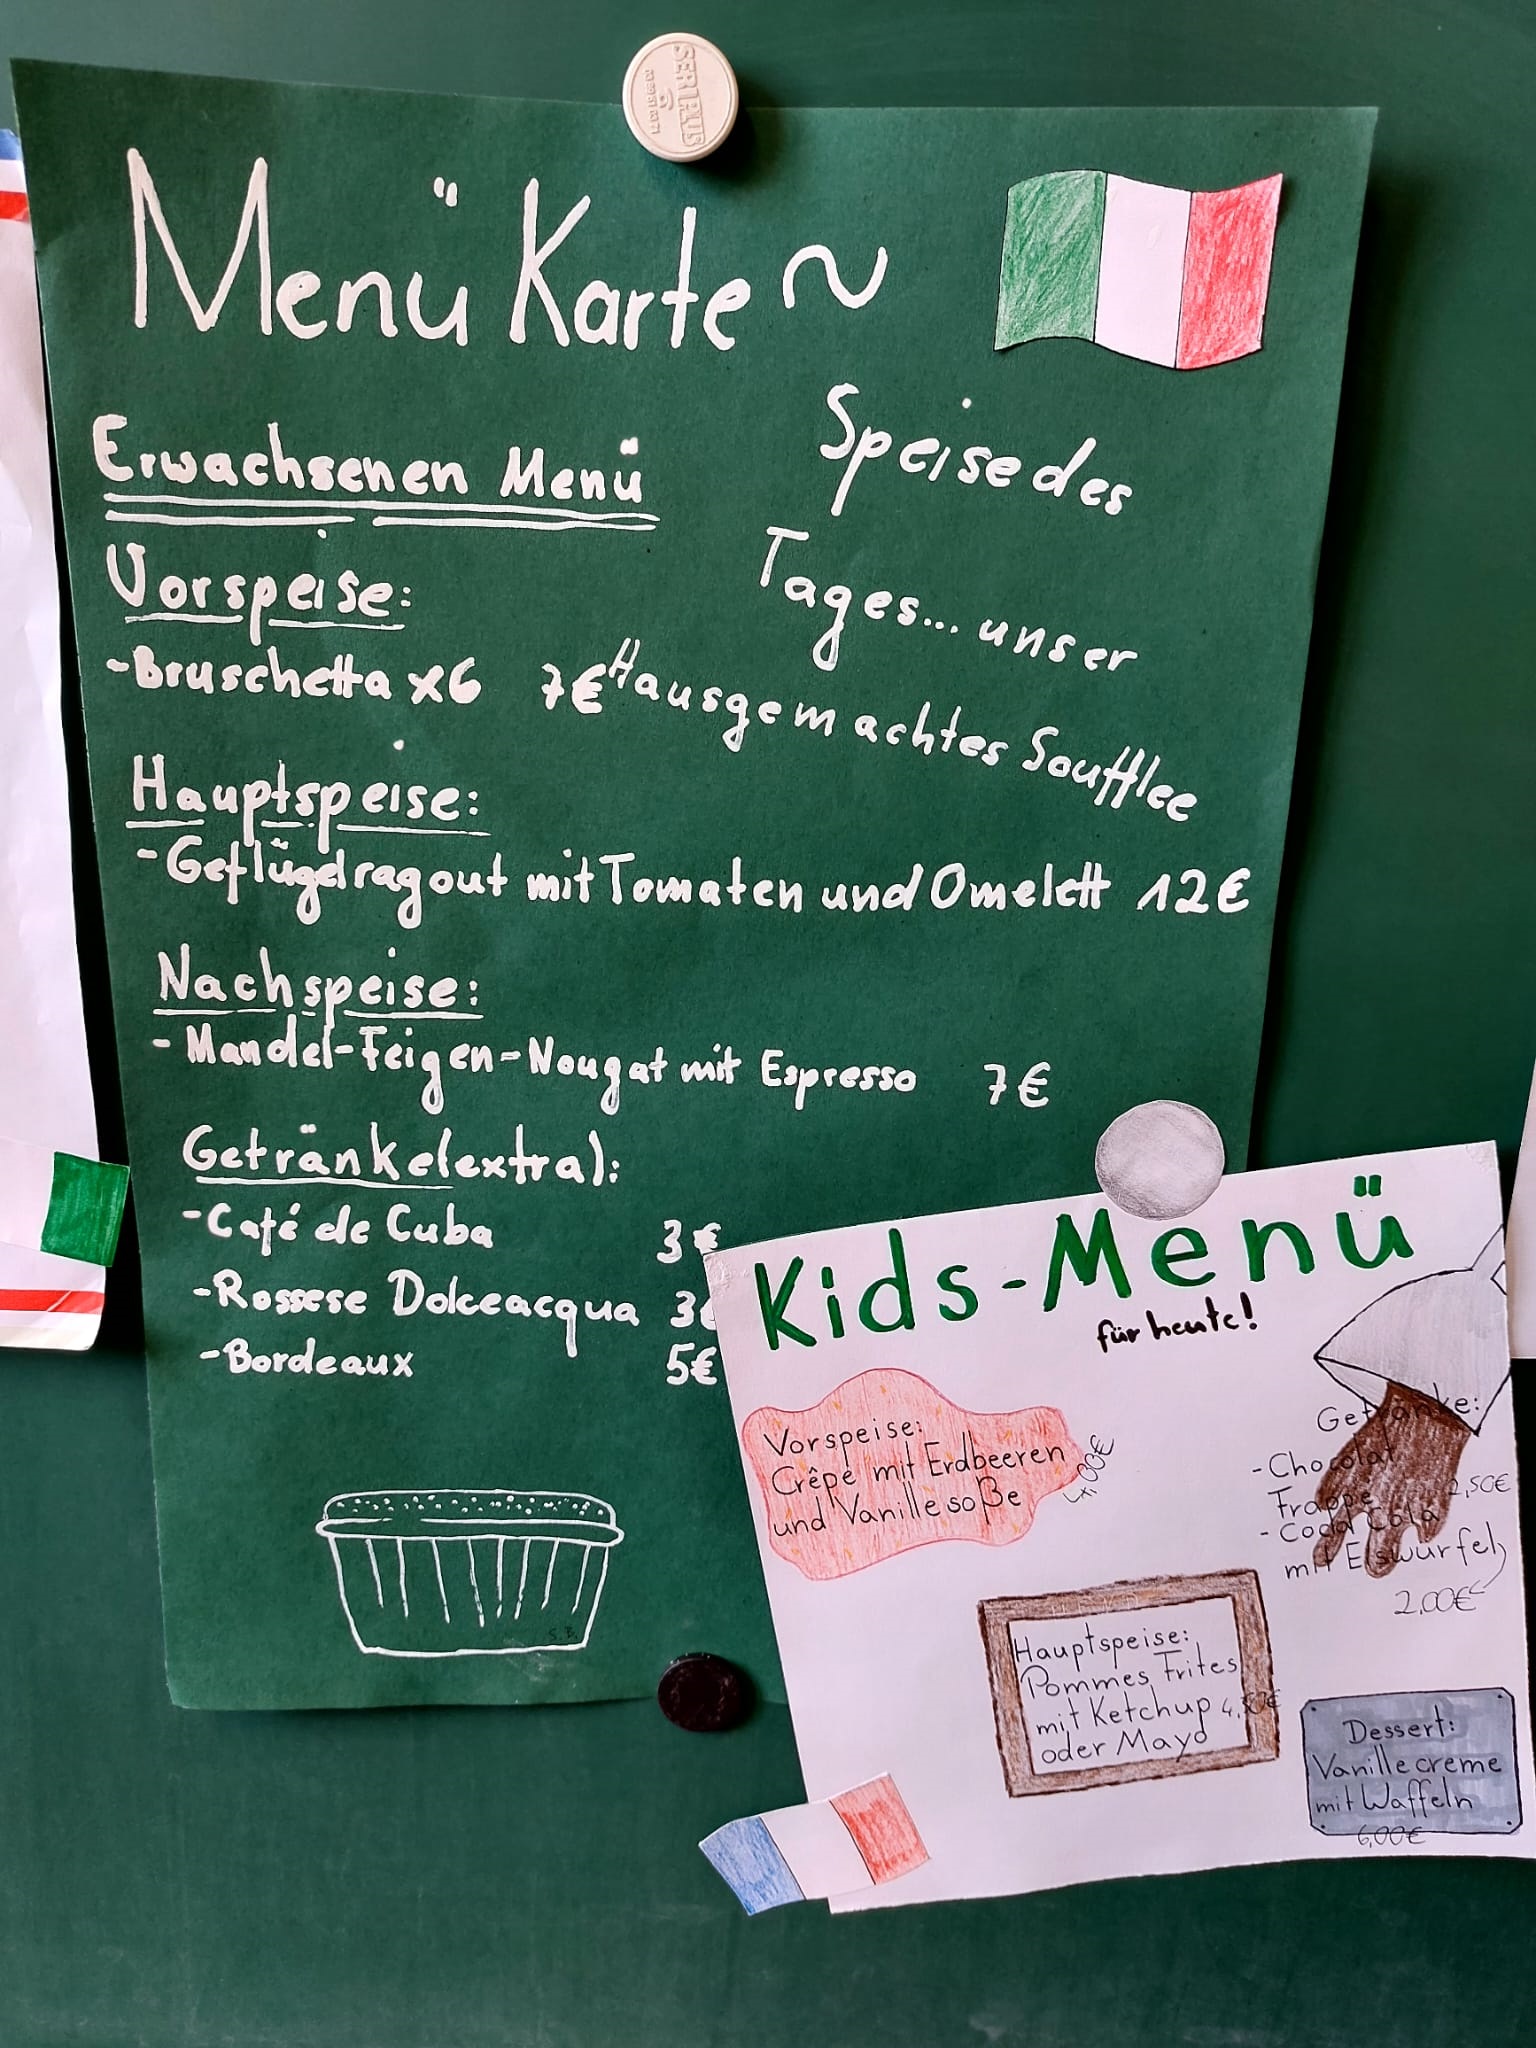 SERIELLIB
Menü Karte ~
Erwachsenen Menü
Vorspeise:
-Bruschetta x6 7€
Hauptspeise:
-Geflügelragout mit Tomaten und Omelett 12€
Nachspeise:
-Mandel-Feigen-Nougat mit Espresso 7€
Getränke(extra):
-Café de Cuba 3€
-Rossese Dolceacqua 3€
-Bordeaux 5€
S.B.
Speise des
Tages... unser
Hausgemachtes Soufflee
Kids-Menü
für heute!
Vorspeise:
Crêpe mit Erdbeeren
und Vanillesoße
4,00€
Getränke:
-Chocolat
Frappé 2,50€
-Coca Cola
mit Eiswürfel
2,00€
Hauptspeise:
Pommes Frites
mit Ketchup
oder Mayo
Dessert:
Vanillecreme
mit Waffeln
6,00€